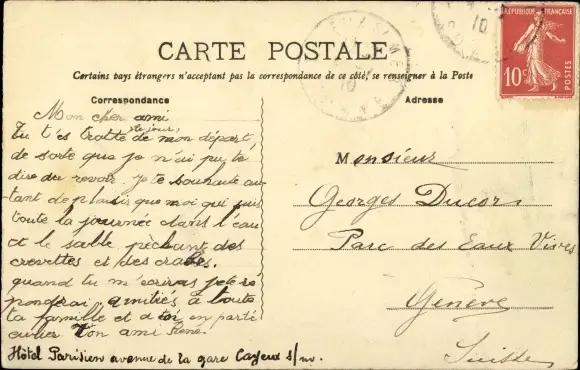 CARTE POSTALE
Certains pays étrangers n'acceptant pas la correspondance de ce côté, se renseigner à la Poste
Correspondance
Mon cher ami
Tu t'es trotté le jour
de mon départ,
de sorte que je n'ai pu te
dire au revoir. Je te souhaite au
tant de plaisir que moi qui suis
toute la journée dans l'eau
et le sable, pêchant des
crevettes et des crabes.
quand tu m'écriras je te ré
pondrai. amitiés à toute
ta famille et à toi en parti
culier Ton ami René.
Hôtel Parisien avenue de la gare Cayeux s/m.
Adresse
Monsieur
Georges Ducor
Parc des Eaux Vives
Genève
Suisse
RÉPUBLIQUE FRANÇAISE
10c
POSTES
10
10